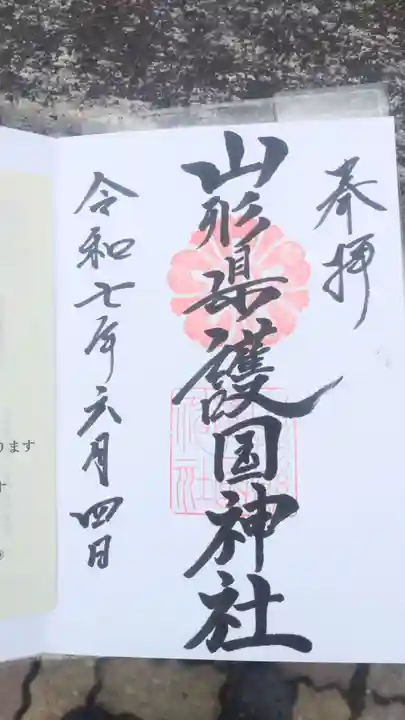 奉拝
山形県護国神社
令和七年六月四日
ります
す